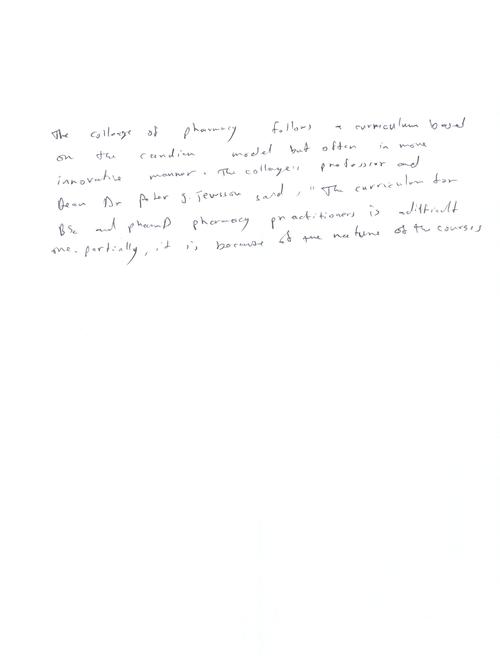 The collage of pharmacy follows a curriculum based
on the candian model but often in more
innovative manner. The collage's professor and
Dean Dr Peter J. Jewsson said, "The curriculum for
BSc and pharmD pharmacy practitioners is a difficult
one. partially, it is because of the nature of the courses